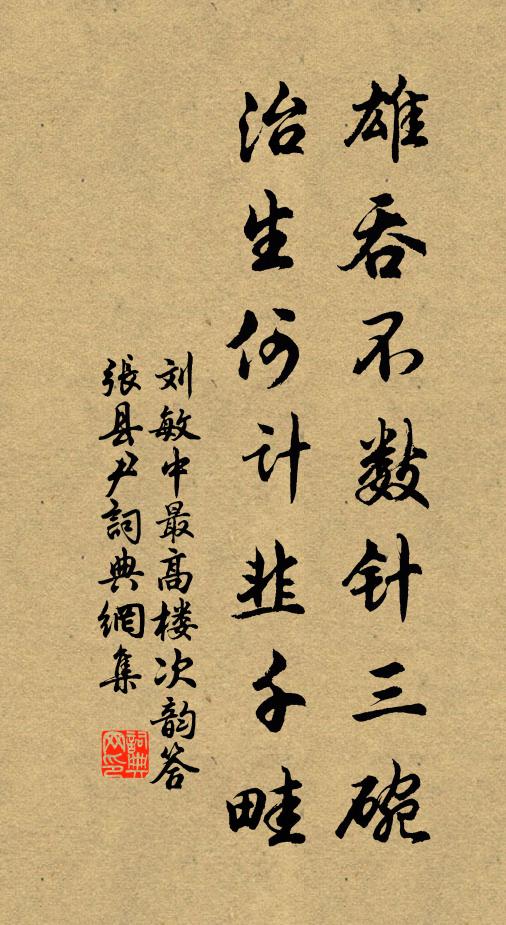 雄吞不数针三碗
治生何计韭千畦
刘敏中最高楼次韵答
張县尹詞典網集
詞典
网印